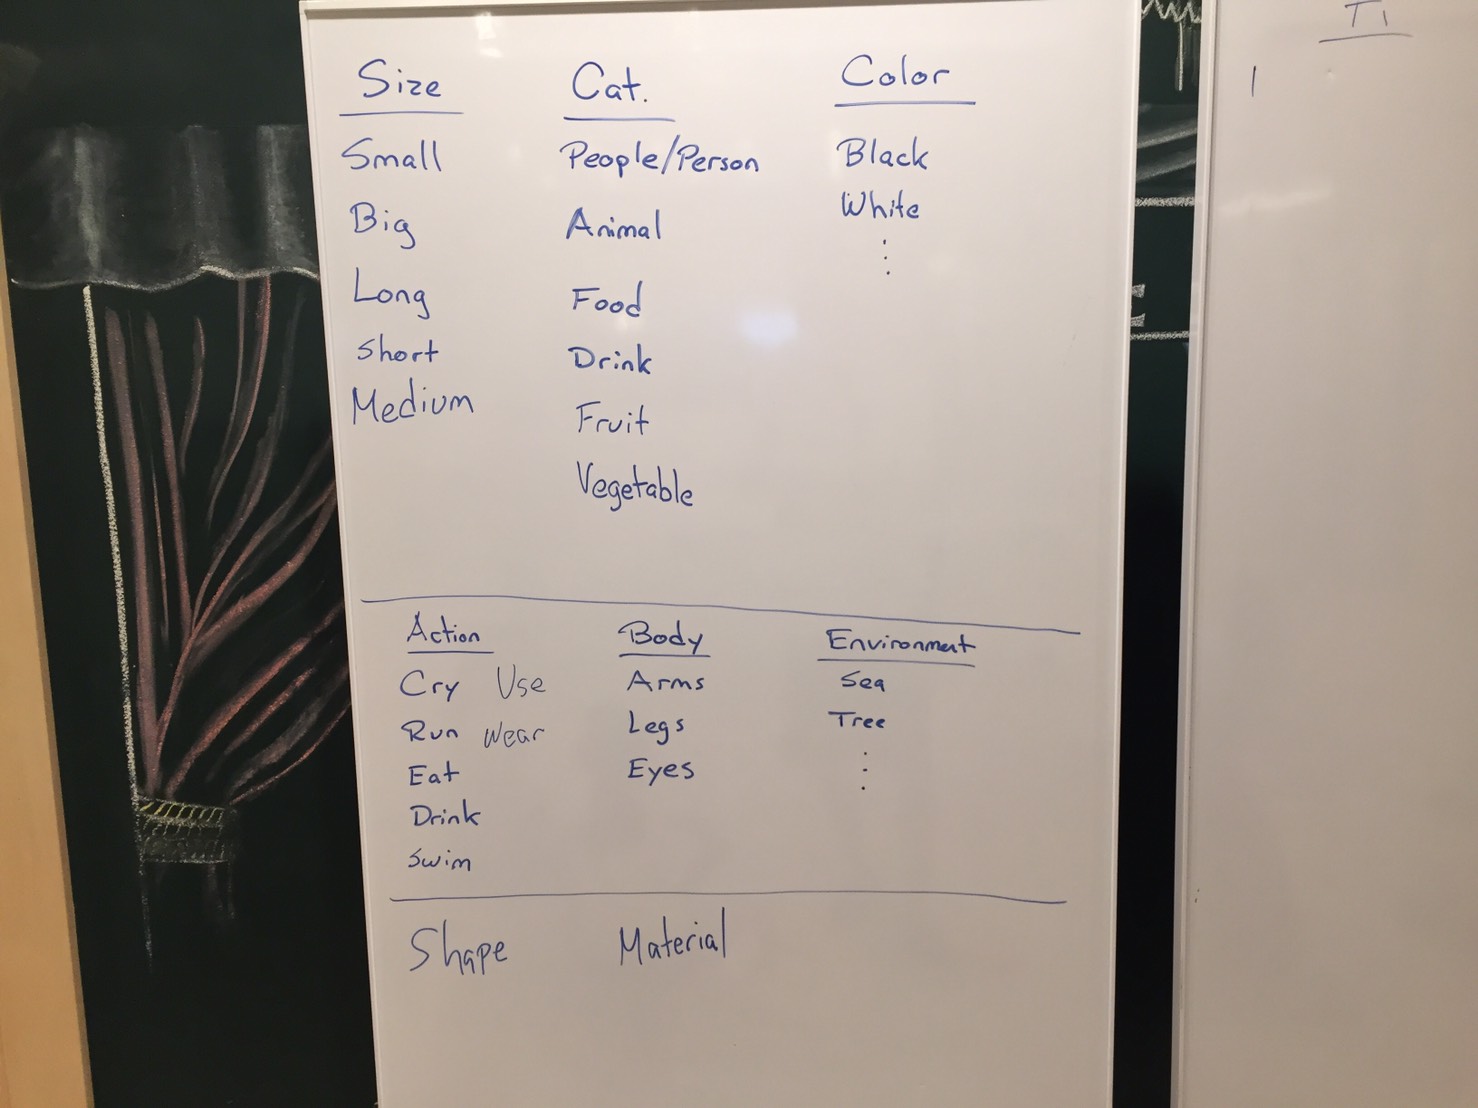 Size
Small
Big
Long
Short
Medium
Cat.
People/Person
Animal
Food
Drink
Fruit
Vegetable
Color
Black
White
⋮
Action
Cry Use
Run Wear
Eat
Drink
Swim
Body
Arms
Legs
Eyes
Environment
Sea
Tree
⋮
Shape
Material